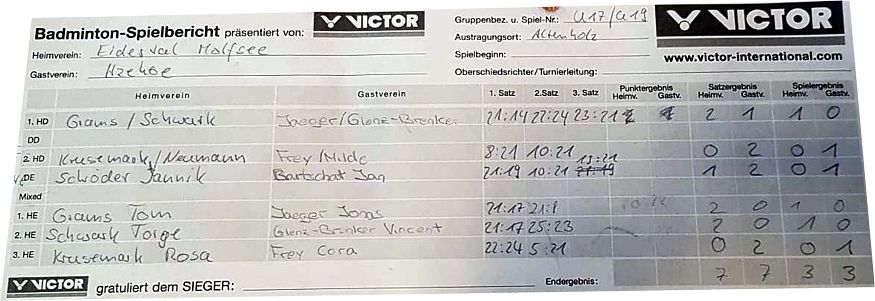 Badminton-Spielbericht präsentiert von: VICTOR
Gruppenbez. u. Spiel-Nr.: U17/U19
VICTOR
Heimverein: Eidertal Molfsee
Austragungsort: Altenholz
Gastverein: Itzehoe
Spielbeginn:
www.victor-international.com
Oberschiedsrichter/Turnierleitung:
Heimverein Gastverein 1. Satz 2. Satz 3. Satz Punktergebnis Heimv. Gastv. Satzergebnis Heimv. Gastv. Spielergebnis Heimv. Gastv.
1. HD Grams / Schwark Jaeger/Glenz-Brenker 21:14 22:24 23:21 2 1 1 0
DD
2. HD Krusemark/Neumann Frey/Milde 8:21 10:21 0 2 0 1
DE Schröder Jannik Bartschat Jan 21:19 10:21 13:21 1 2 0 1
Mixed
1. HE Grams Tom Jaeger Jonas 21:17 21:8 2 0 1 0
2. HE Schwark Torge Glenz-Brenker Vincent 21:17 25:23 2 0 1 0
3. HE Krusemark Rosa Frey Cora 22:24 5:21 0 2 0 1
VICTOR gratuliert dem SIEGER: Endergebnis: 7 7 3 3